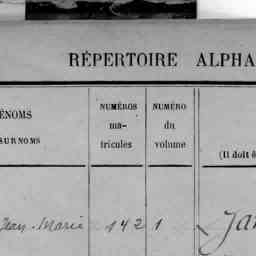 RÉPERTOIRE ALPHA
ÉNOMS
SURNOMS
NUMÉROS
ma-
tricules
NUMÉRO
du
volume
(Il doit ê
Jean-Marie 142 1